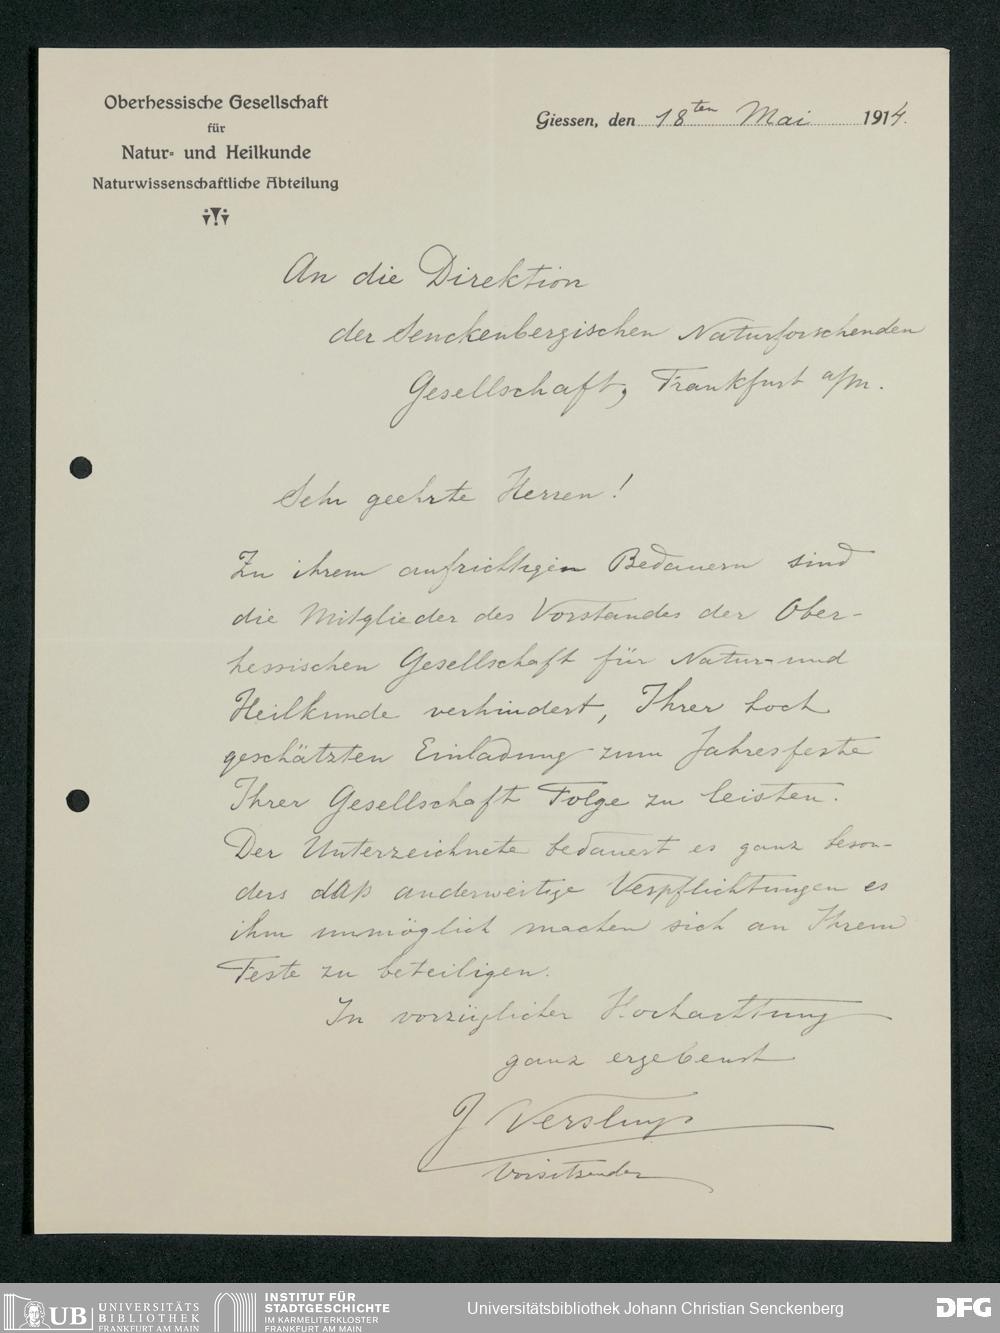 Oberhessische Gesellschaft
für
Natur- und Heilkunde
Naturwissenschaftliche Abteilung
Giessen, den 18ten Mai 1914.
An die Direktion
der Senckenbergischen Naturforschenden
Gesellschaft, Frankfurt a/m.
Sehr geehrte Herren!
Zu ihrem aufrichtigen Bedauern sind
die Mitglieder des Vorstandes der Ober-
hessischen Gesellschaft für Natur- und
Heilkunde verhindert, Ihrer hoch
geschätzten Einladung zum Jahresfeste
Ihrer Gesellschaft Folge zu leisten.
Der Unterzeichnete bedauert es ganz beson-
ders daß anderweitige Verpflichtungen es
ihm unmöglich machen sich an Ihrem
Feste zu beteiligen.
In vorzüglicher Hochachtung
ganz ergebenst
J Versluys
Vorsitzender
UB UNIVERSITÄTS
BIBLIOTHEK
FRANKFURT AM MAIN
INSTITUT FÜR
STADTGESCHICHTE
IM KARMELITERKLOSTER
FRANKFURT AM MAIN
Universitätsbibliothek Johann Christian Senckenberg
DFG